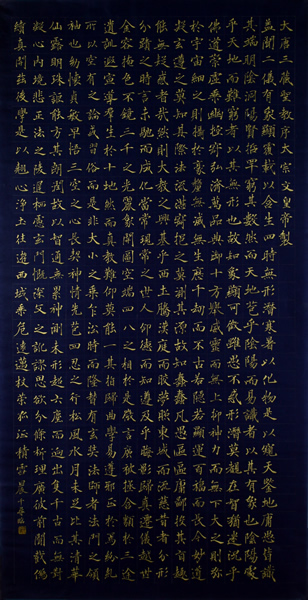 大唐三藏聖教序太宗文皇帝製
蓋聞二儀有象顯覆載以含生四時無形潛寒暑以化物是以窺天鑒地庸愚皆識
其端明陰洞陽賢哲罕窮其數然而天地苞乎陰陽而易識者以其有象也陰陽處
乎天地而難窮者以其無形也故知象顯可徵雖愚不惑形潛莫覩在智猶迷況乎
佛道崇虛乘幽控寂弘濟萬品典御十方舉威靈而無上抑神力而無下大之則彌
於宇宙細之則攝於毫釐無滅無生歷千劫而不古若隱若顯運百福而長今妙道
凝玄遵之莫知其際法流湛寂挹之莫測其源故知蠢蠢凡愚區區庸鄙投其旨趣
能無疑惑者哉然則大教之興基乎西土騰漢庭而皎夢照東域而流慈昔者分形
分蹟之時言未馳而成化當常現常之世人仰德而知遵及乎晦影歸真遷儀越世
金容掩色不鏡三千之光麗象開圖空端四八之相於是微言廣被拯含類於三途
遺訓遐宣導群生於十地然而真教難仰莫能一其旨歸曲學易遵邪正於焉紛糺
所以空有之論或習俗而是非大小之乘乍沿時而隆替有玄奘法師者法門之領
袖也幼懷貞敏早悟三空之心長契神情先苞四忍之行松風水月未足比其清華
仙露明珠詎能方其朗潤故以智通無累神測未形超六塵而迥出隻千古而無對
凝心內境悲正法之陵遲栖慮玄門慨深文之訛謬思欲分條析理廣彼前聞截偽
續真開茲後學是以翹心淨土往遊西域乘危遠邁杖策孤征積雪晨